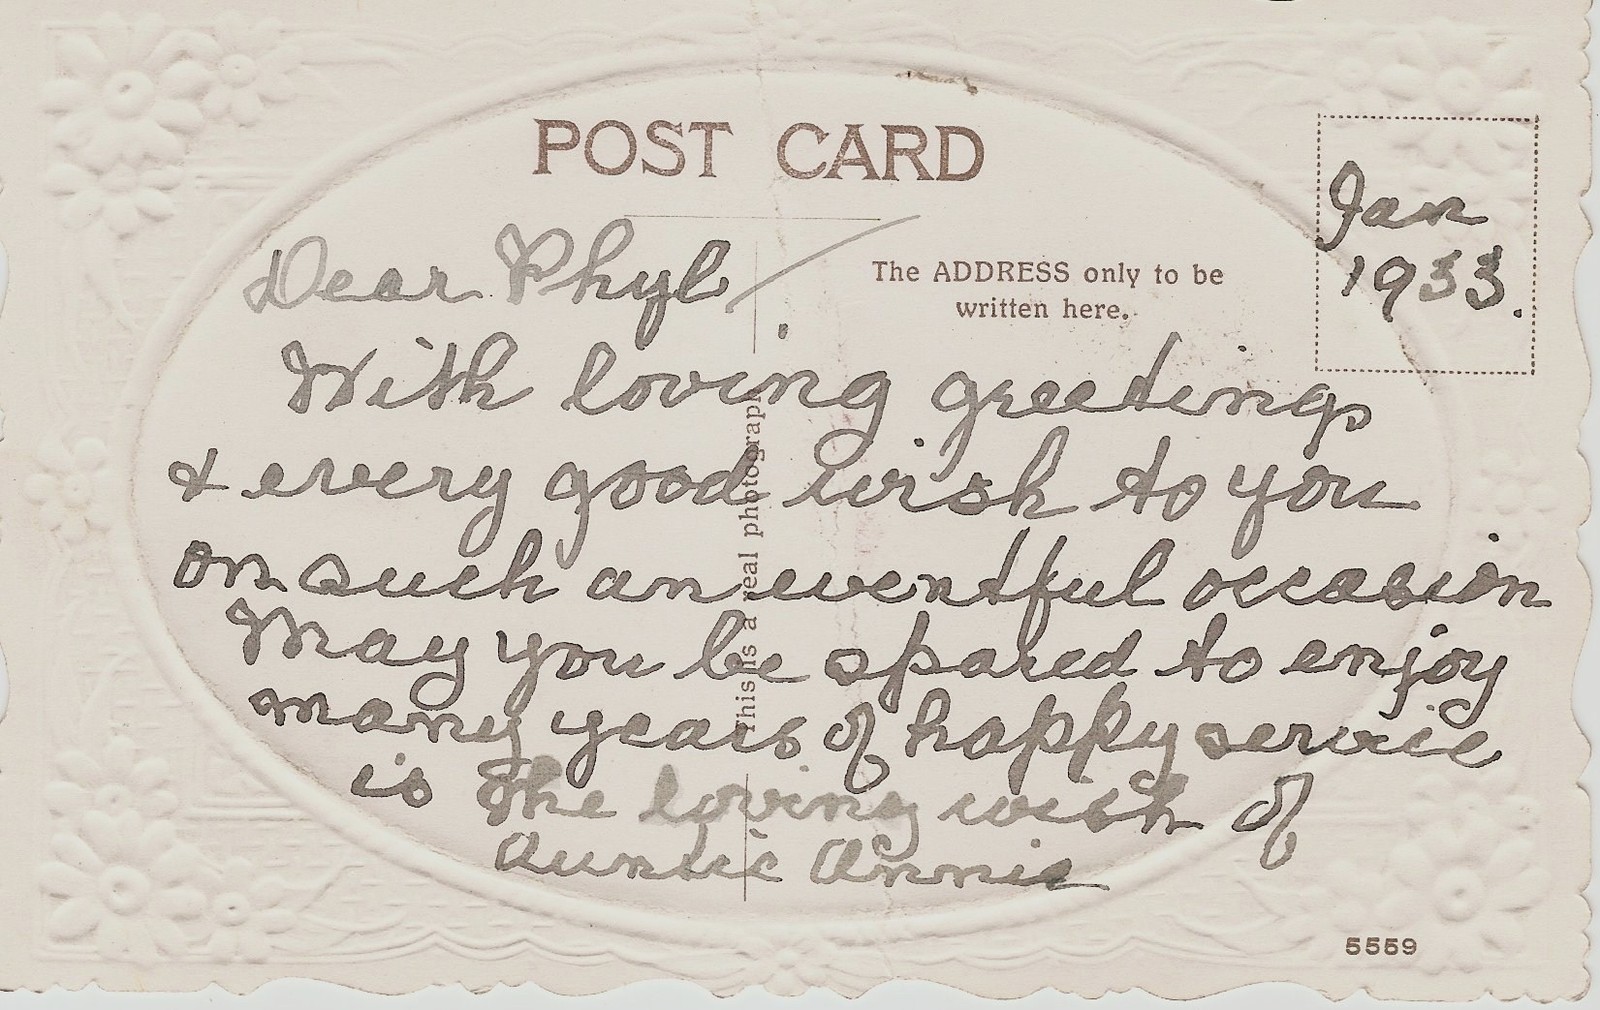 POST CARD
Jan
1933.
The ADDRESS only to be
written here.
This is a real photograph
Dear Phyl
With loving greetings
& every good wish to you
on such an eventful occasion
May you be spared to enjoy
many years of happy service
is the loving wish of
Auntie Annie
5559